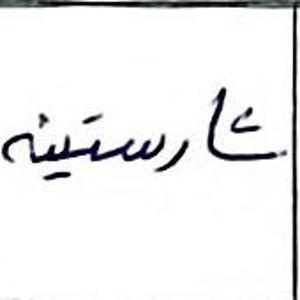 شارستینه